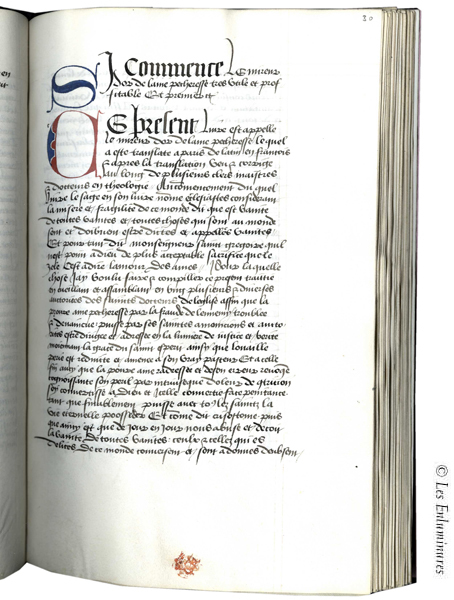 Si Commence Le mireur
dor de lame pecheresse tres utile et prof
fitable Et premier
Ce present livre est appelle
le mireur dor de lame pecheresse lequel
a este translate a paris de latin en francois
Et apres la translation veu et corrige
au long de plusieurs clers maistres
docteurs en theologie Au commencement du quel
livre le sage en son livre nomme ecclesiastes considerant
la misere et fragilite de ce monde dit que est vanite
de toutes vanites et toutes choses qui sont au monde
sont et doibvent estre dictes et appellees vanites
Et pour tant dit monseigneur saint gregoire quil
nest point a dieu de plus acceptable sacrifice que le
zele cest adire lamour des ames Pour laquelle
chose jay voulu faire et compiller ce present traitie
en cueillant et assamblant en ung plusieurs et diverses
auctorites des saints docteurs de leglise affin que la
povre ame pecheresse par la fraude de lennemy troublee
puisse par ses saintes monicions et aucto
rites estre dirigee et adressee en la lumiere de justice et verite
moiennant la grace du saint esperit ainsy que louaille
perie est reduite et amenee a son vray pasteur Et a celle
fin aussy que la povre ame adressee et de son erreur revoquee
congnoissante son peril par
soy convertisse a dieu Et icelle convertie face penitance
tant que finablement puisse avec to les saintz la
vie eternelle posseder Et come dit crisostome puis
que ainsy est que de jour en jour nous abuse et decoit
la vanite de toutes vanites ceulx et celles qui es
delices de ce monde conversent et sont adonnes
© Les Enluminures